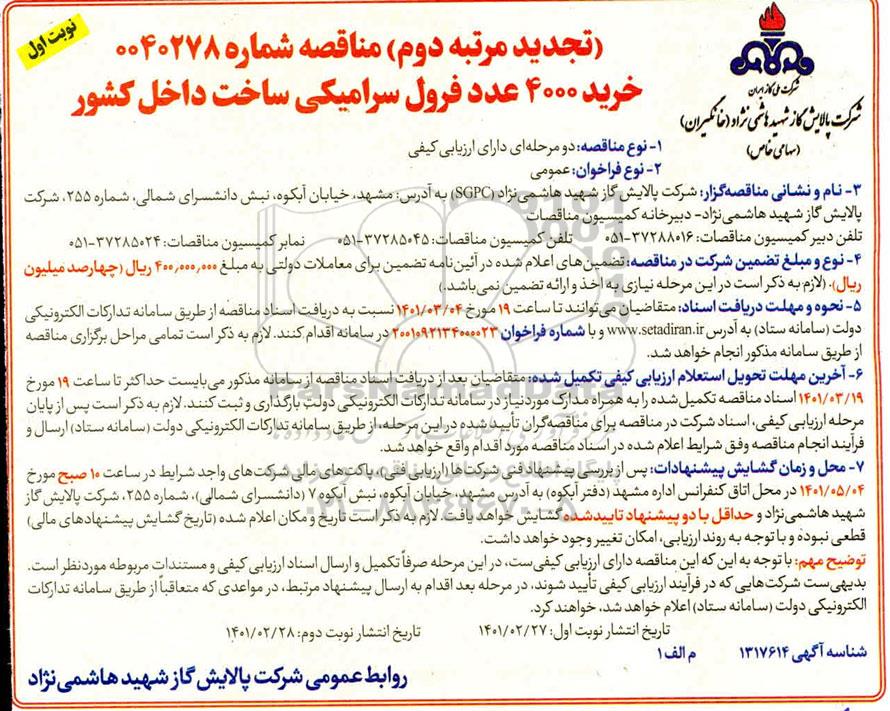 نوبت اول
(تجدید مرتبه دوم) مناقصه شماره ۰۰۴۰۲۷۸
خرید ۴۰۰۰ عدد فرول سرامیکی ساخت داخل کشور
شرکت ملی گاز ایران
شرکت پالایش گاز شهید هاشمی نژاد (خانگیران)
(سهامی خاص)
۱- نوع مناقصه: دو مرحله‌ای دارای ارزیابی کیفی
۲- نوع فراخوان: عمومی
۳- نام و نشانی مناقصه‌گزار: شرکت پالایش گاز شهید هاشمی‌نژاد (SGPC) به آدرس: مشهد، خیابان آبکوه، نبش دانشسرای شمالی، شماره ۲۵۵، شرکت
پالایش گاز شهید هاشمی‌نژاد- دبیرخانه کمیسیون مناقصات
تلفن دبیر کمیسیون مناقصات: ۳۷۲۸۸۰۱۶-۰۵۱ تلفن کمیسیون مناقصات: ۳۷۲۸۵۰۴۵-۰۵۱ نمابر کمیسیون مناقصات: ۳۷۲۸۵۰۲۴-۰۵۱
۴- نوع و مبلغ تضمین شرکت در مناقصه: تضمین‌های اعلام شده در آئین‌نامه تضمین برای معاملات دولتی به مبلغ ۴۰۰,۰۰۰,۰۰۰ ریال (چهارصد میلیون
ریال). (لازم به ذکر است در این مرحله نیازی به اخذ و ارائه تضمین نمی‌باشد.)
۵- نحوه و مهلت دریافت اسناد: متقاضیان می‌توانند تا ساعت ۱۹ مورخ ۱۴۰۱/۰۳/۰۴ نسبت به دریافت اسناد مناقصه از طریق سامانه تدارکات الکترونیکی
دولت (سامانه ستاد) به آدرس www.setadiran.ir و با شماره فراخوان ۲۰۰۱۰۹۲۱۳۴۰۰۰۰۲۳ در سامانه اقدام کنند. لازم به ذکر است تمامی مراحل برگزاری مناقصه
از طریق سامانه مذکور انجام خواهد شد.
۶- آخرین مهلت تحویل استعلام ارزیابی کیفی تکمیل شده: متقاضیان بعد از دریافت اسناد مناقصه از سامانه مذکور می‌بایست حداکثر تا ساعت ۱۹ مورخ
۱۴۰۱/۰۳/۱۹ اسناد مناقصه تکمیل‌شده را به همراه مدارک موردنیاز در سامانه تدارکات الکترونیکی دولت بارگذاری و ثبت کنند. لازم به ذکر است پس از پایان
مرحله ارزیابی کیفی، اسناد شرکت در مناقصه برای مناقصه‌گران تأیید‌شده در این مرحله، از طریق سامانه تدارکات الکترونیکی دولت (سامانه ستاد) ارسال و
فرآیند انجام مناقصه وفق شرایط اعلام شده در اسناد مناقصه مورد اقدام واقع خواهد شد.
۷- محل و زمان گشایش پیشنهادات: پس از بررسی پیشنهاد فنی شرکت‌ها (ارزیابی فنی)، پاکت‌های مالی شرکت‌های واجد شرایط در ساعت ۱۰ صبح مورخ
۱۴۰۱/۰۵/۰۴ در محل اتاق کنفرانس اداره مشهد (دفتر آبکوه) به آدرس مشهد، خیابان آبکوه، نبش آبکوه ۷ (دانشسرای شمالی)، شماره ۲۵۵، شرکت پالایش گاز
شهید هاشمی‌نژاد و حداقل با دو پیشنهاد تاییدشده گشایش خواهد یافت. لازم به ذکر است تاریخ و مکان اعلام شده (تاریخ گشایش پیشنهادهای مالی)
قطعی نبوده و با توجه به روند ارزیابی، امکان تغییر وجود خواهد داشت.
توضیح مهم: با توجه به این که این مناقصه دارای ارزیابی کیفی‌ست، در این مرحله صرفاً تکمیل و ارسال اسناد ارزیابی کیفی و مستندات مربوطه موردنظر است.
بدیهی‌ست شرکت‌هایی که در فرآیند ارزیابی کیفی تأیید شوند، در مرحله بعد اقدام به ارسال پیشنهاد مرتبط، در مواعدی که متعاقباً از طریق سامانه تدارکات
الکترونیکی دولت (سامانه ستاد) اعلام خواهد شد، خواهند کرد.
تاریخ انتشار نوبت اول: ۱۴۰۱/۰۲/۲۷ تاریخ انتشار نوبت دوم: ۱۴۰۱/۰۲/۲۸
شناسه آگهی ۱۳۱۷۶۱۴ م الف ۱
روابط عمومی شرکت پالایش گاز شهید هاشمی نژاد